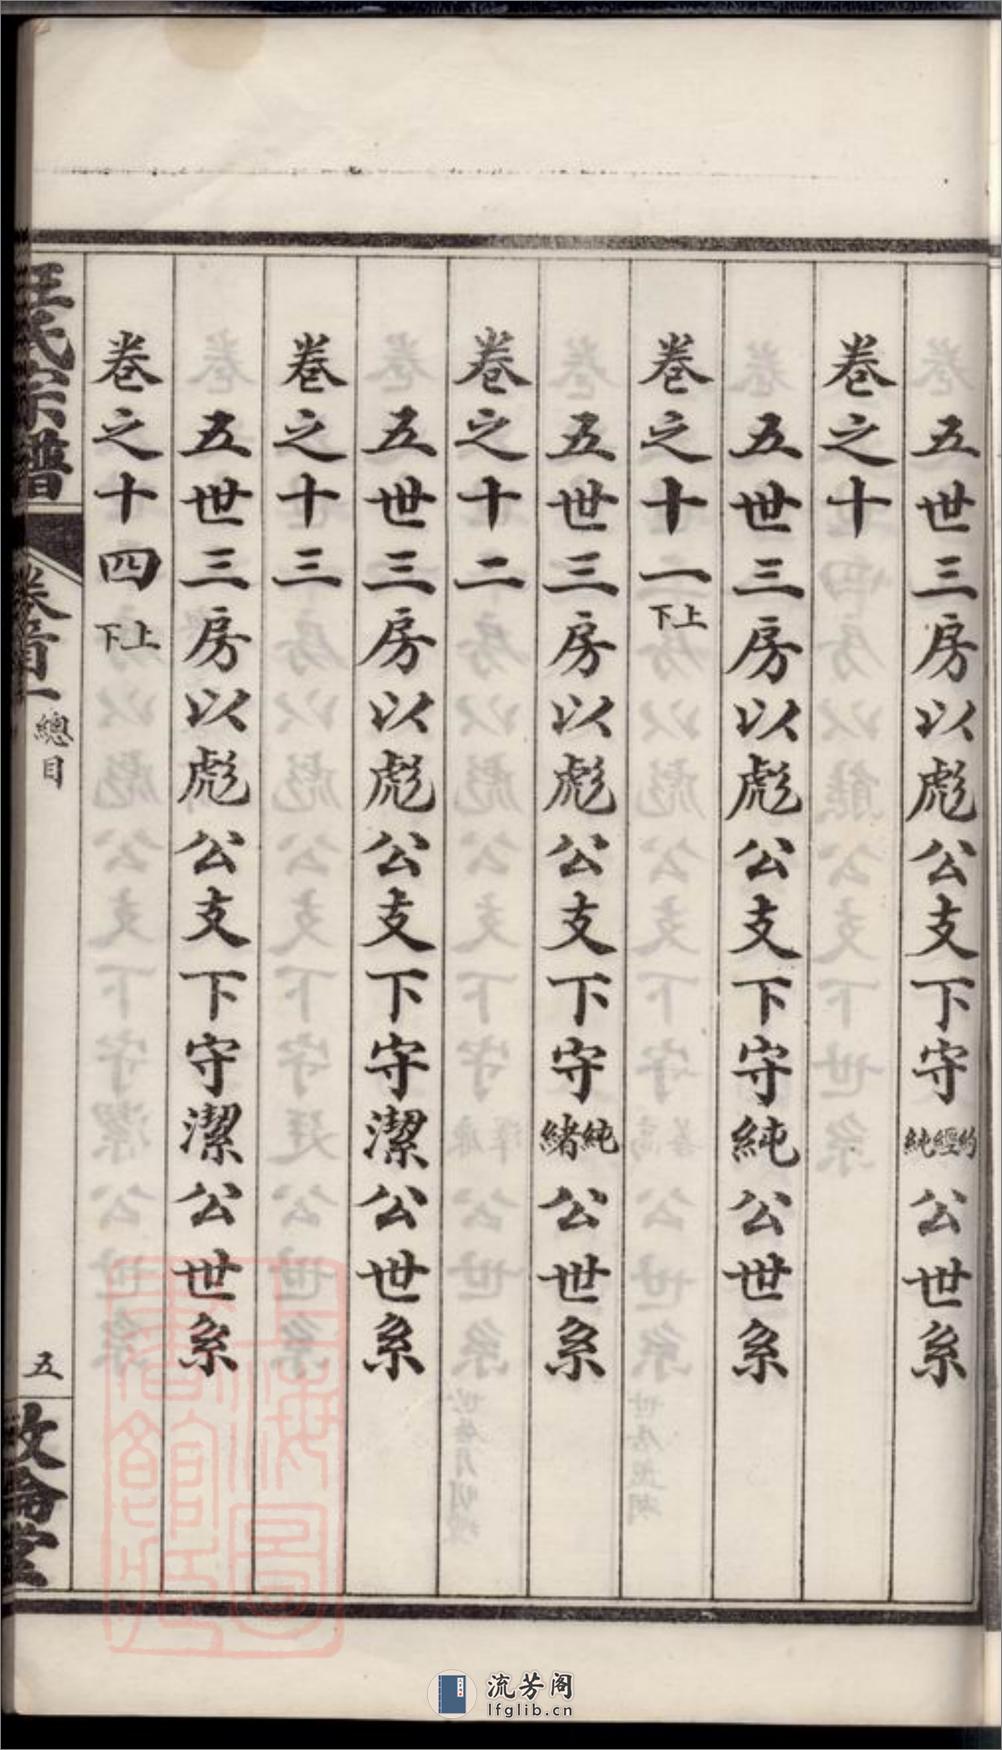 五世三房以彪公支下守約經純公世系
卷之十
五世三房以彪公支下守純公世系
卷之十一上下
五世三房以彪公支下守純緒公世系
卷之十二
五世三房以彪公支下守潔公世系
卷之十三
五世三房以彪公支下守潔公世系
卷之十四上下
氏宗譜
卷首一 總目
五
敦倫堂
上海圖書館藏
流芳阁
lfglib.cn